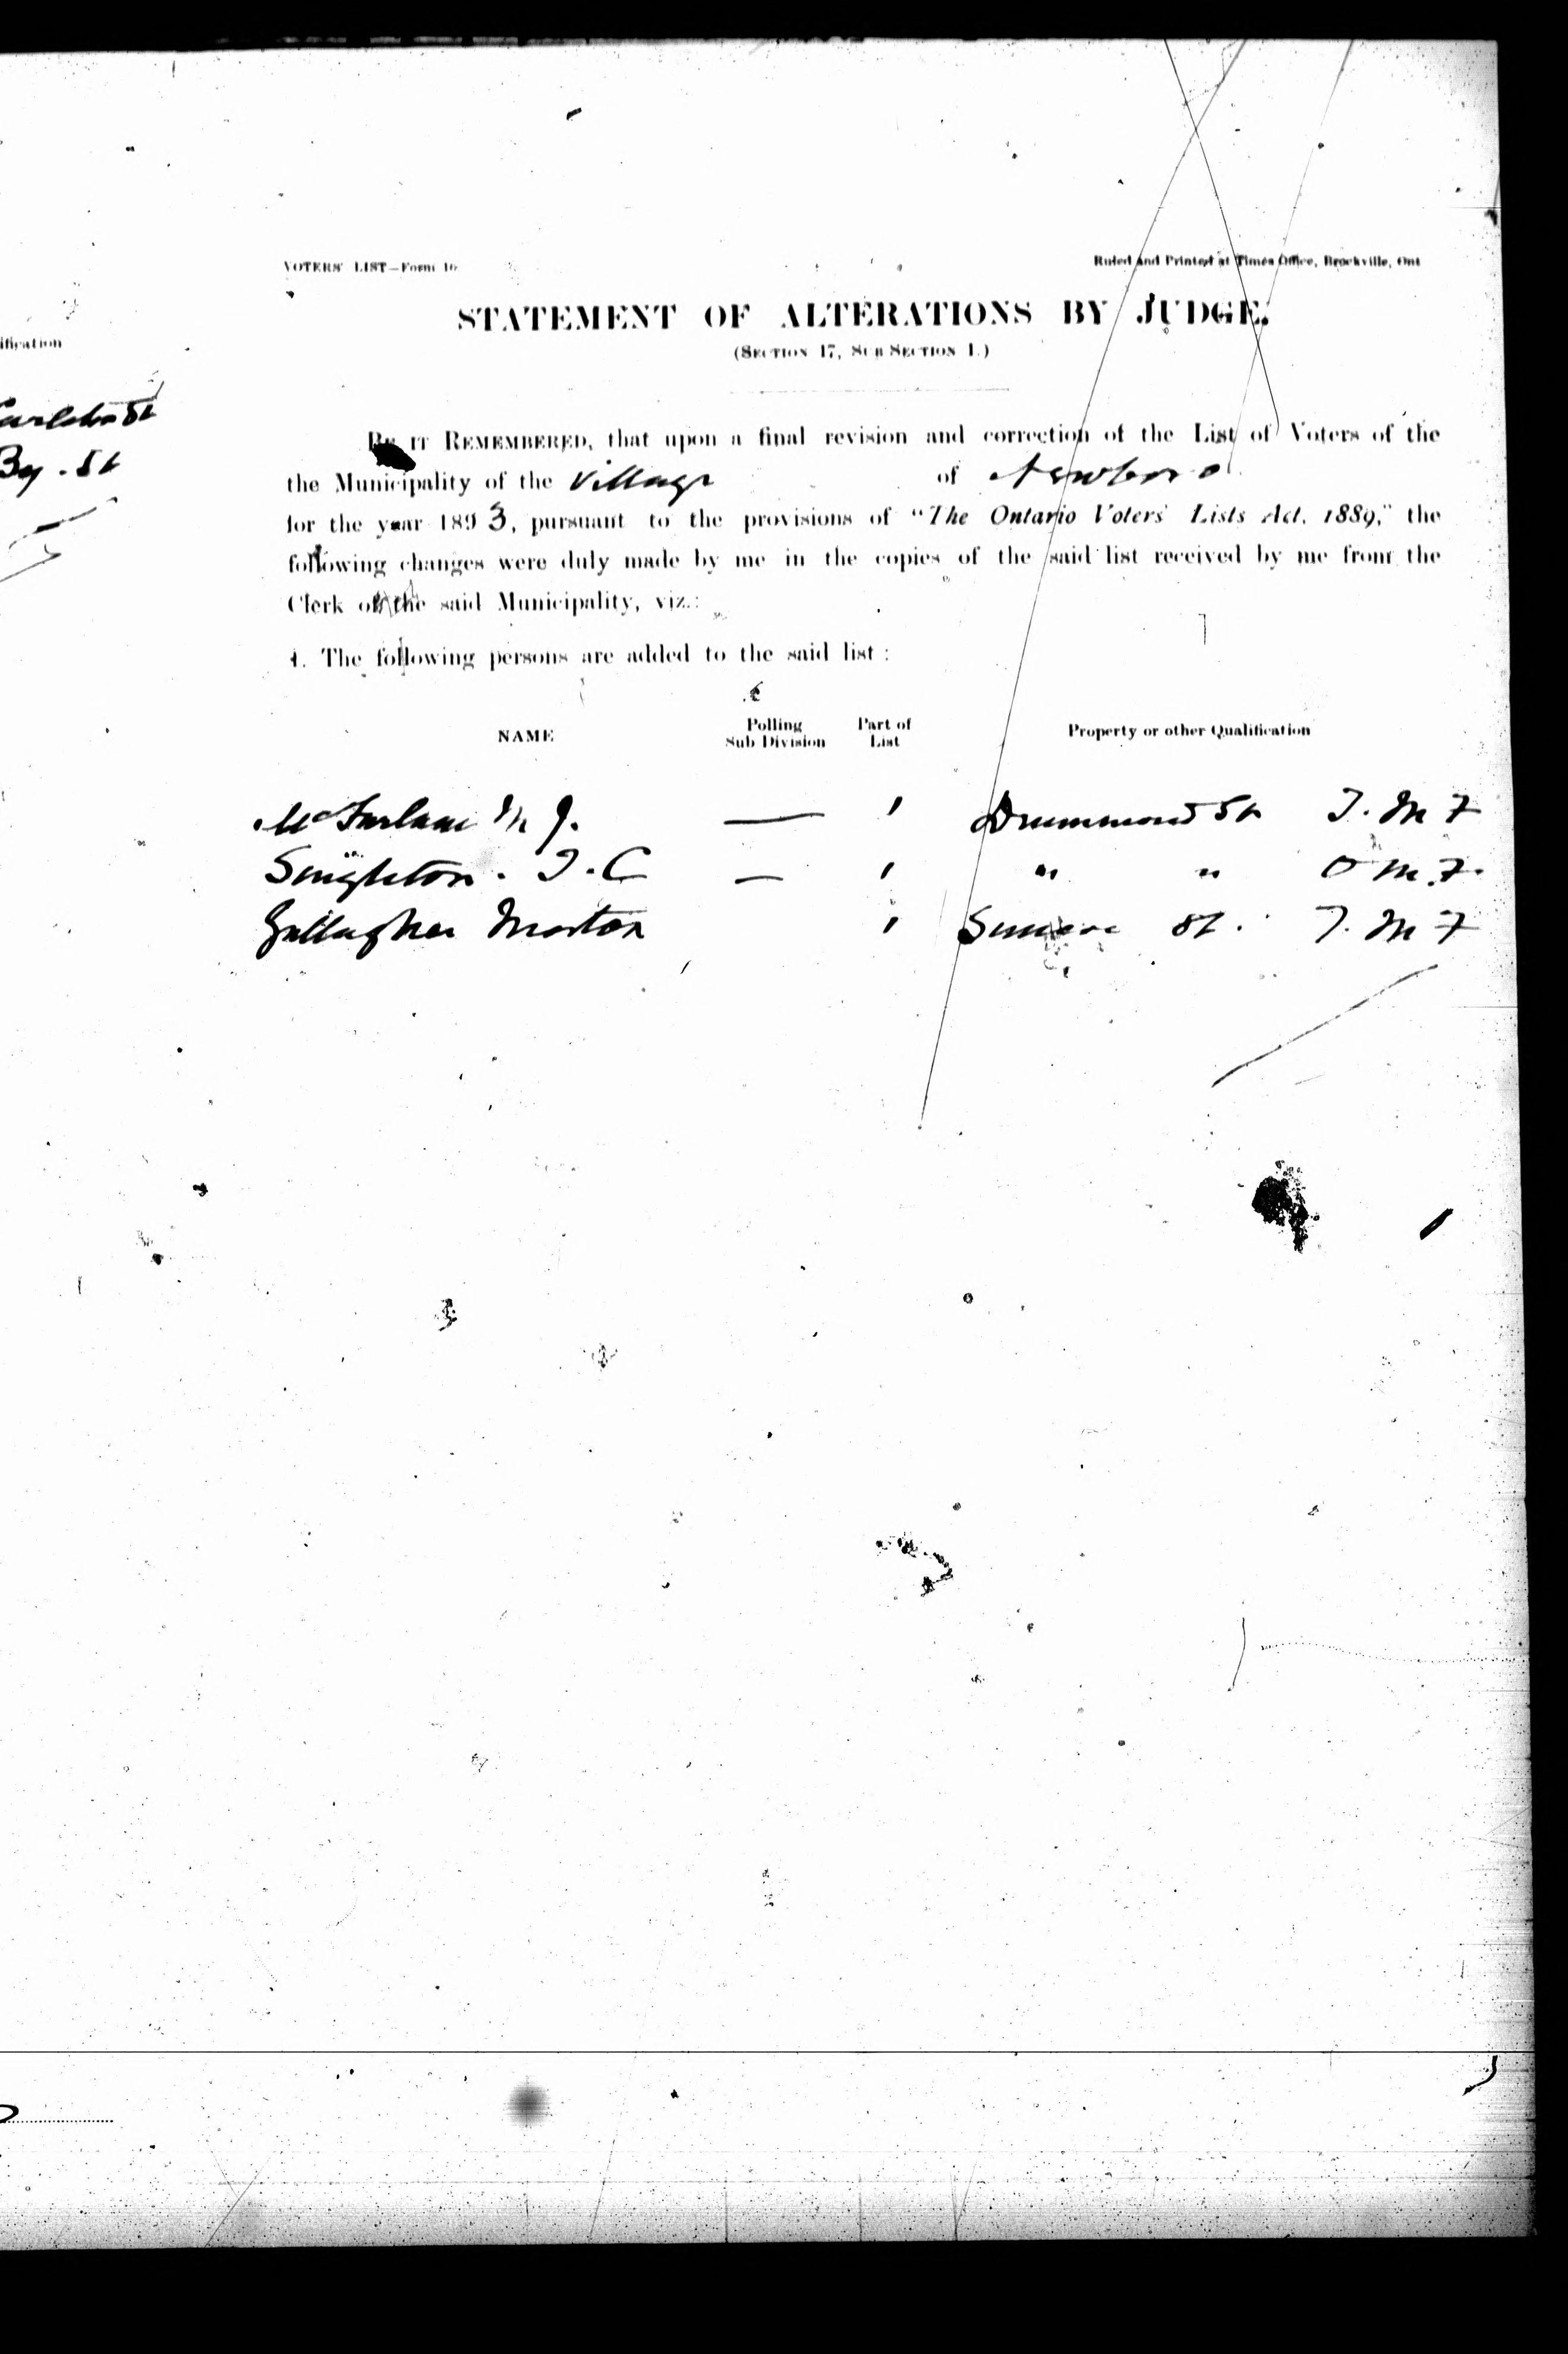 ification
Carleton St
By. St
VOTERS' LIST—Form 16
Ruled and Printed at Times Office, Brockville, Ont
STATEMENT OF ALTERATIONS BY JUDGE.
(Section 17, Sub Section 1.)
Be it Remembered, that upon a final revision and correction of the List of Voters of the
the Municipality of the Village of Newboro
for the year 1893, pursuant to the provisions of "The Ontario Voters' Lists Act, 1889," the
following changes were duly made by me in the copies of the said list received by me from the
Clerk of the said Municipality, viz.:
1. The following persons are added to the said list:
NAME Polling Sub Division Part of List Property or other Qualification
McFarlane M J. — 1 Drummond St T. M F
Singleton. J. C — 1 " " O M. F.
Gallagher Morton 1 Simcoe St. T. M F